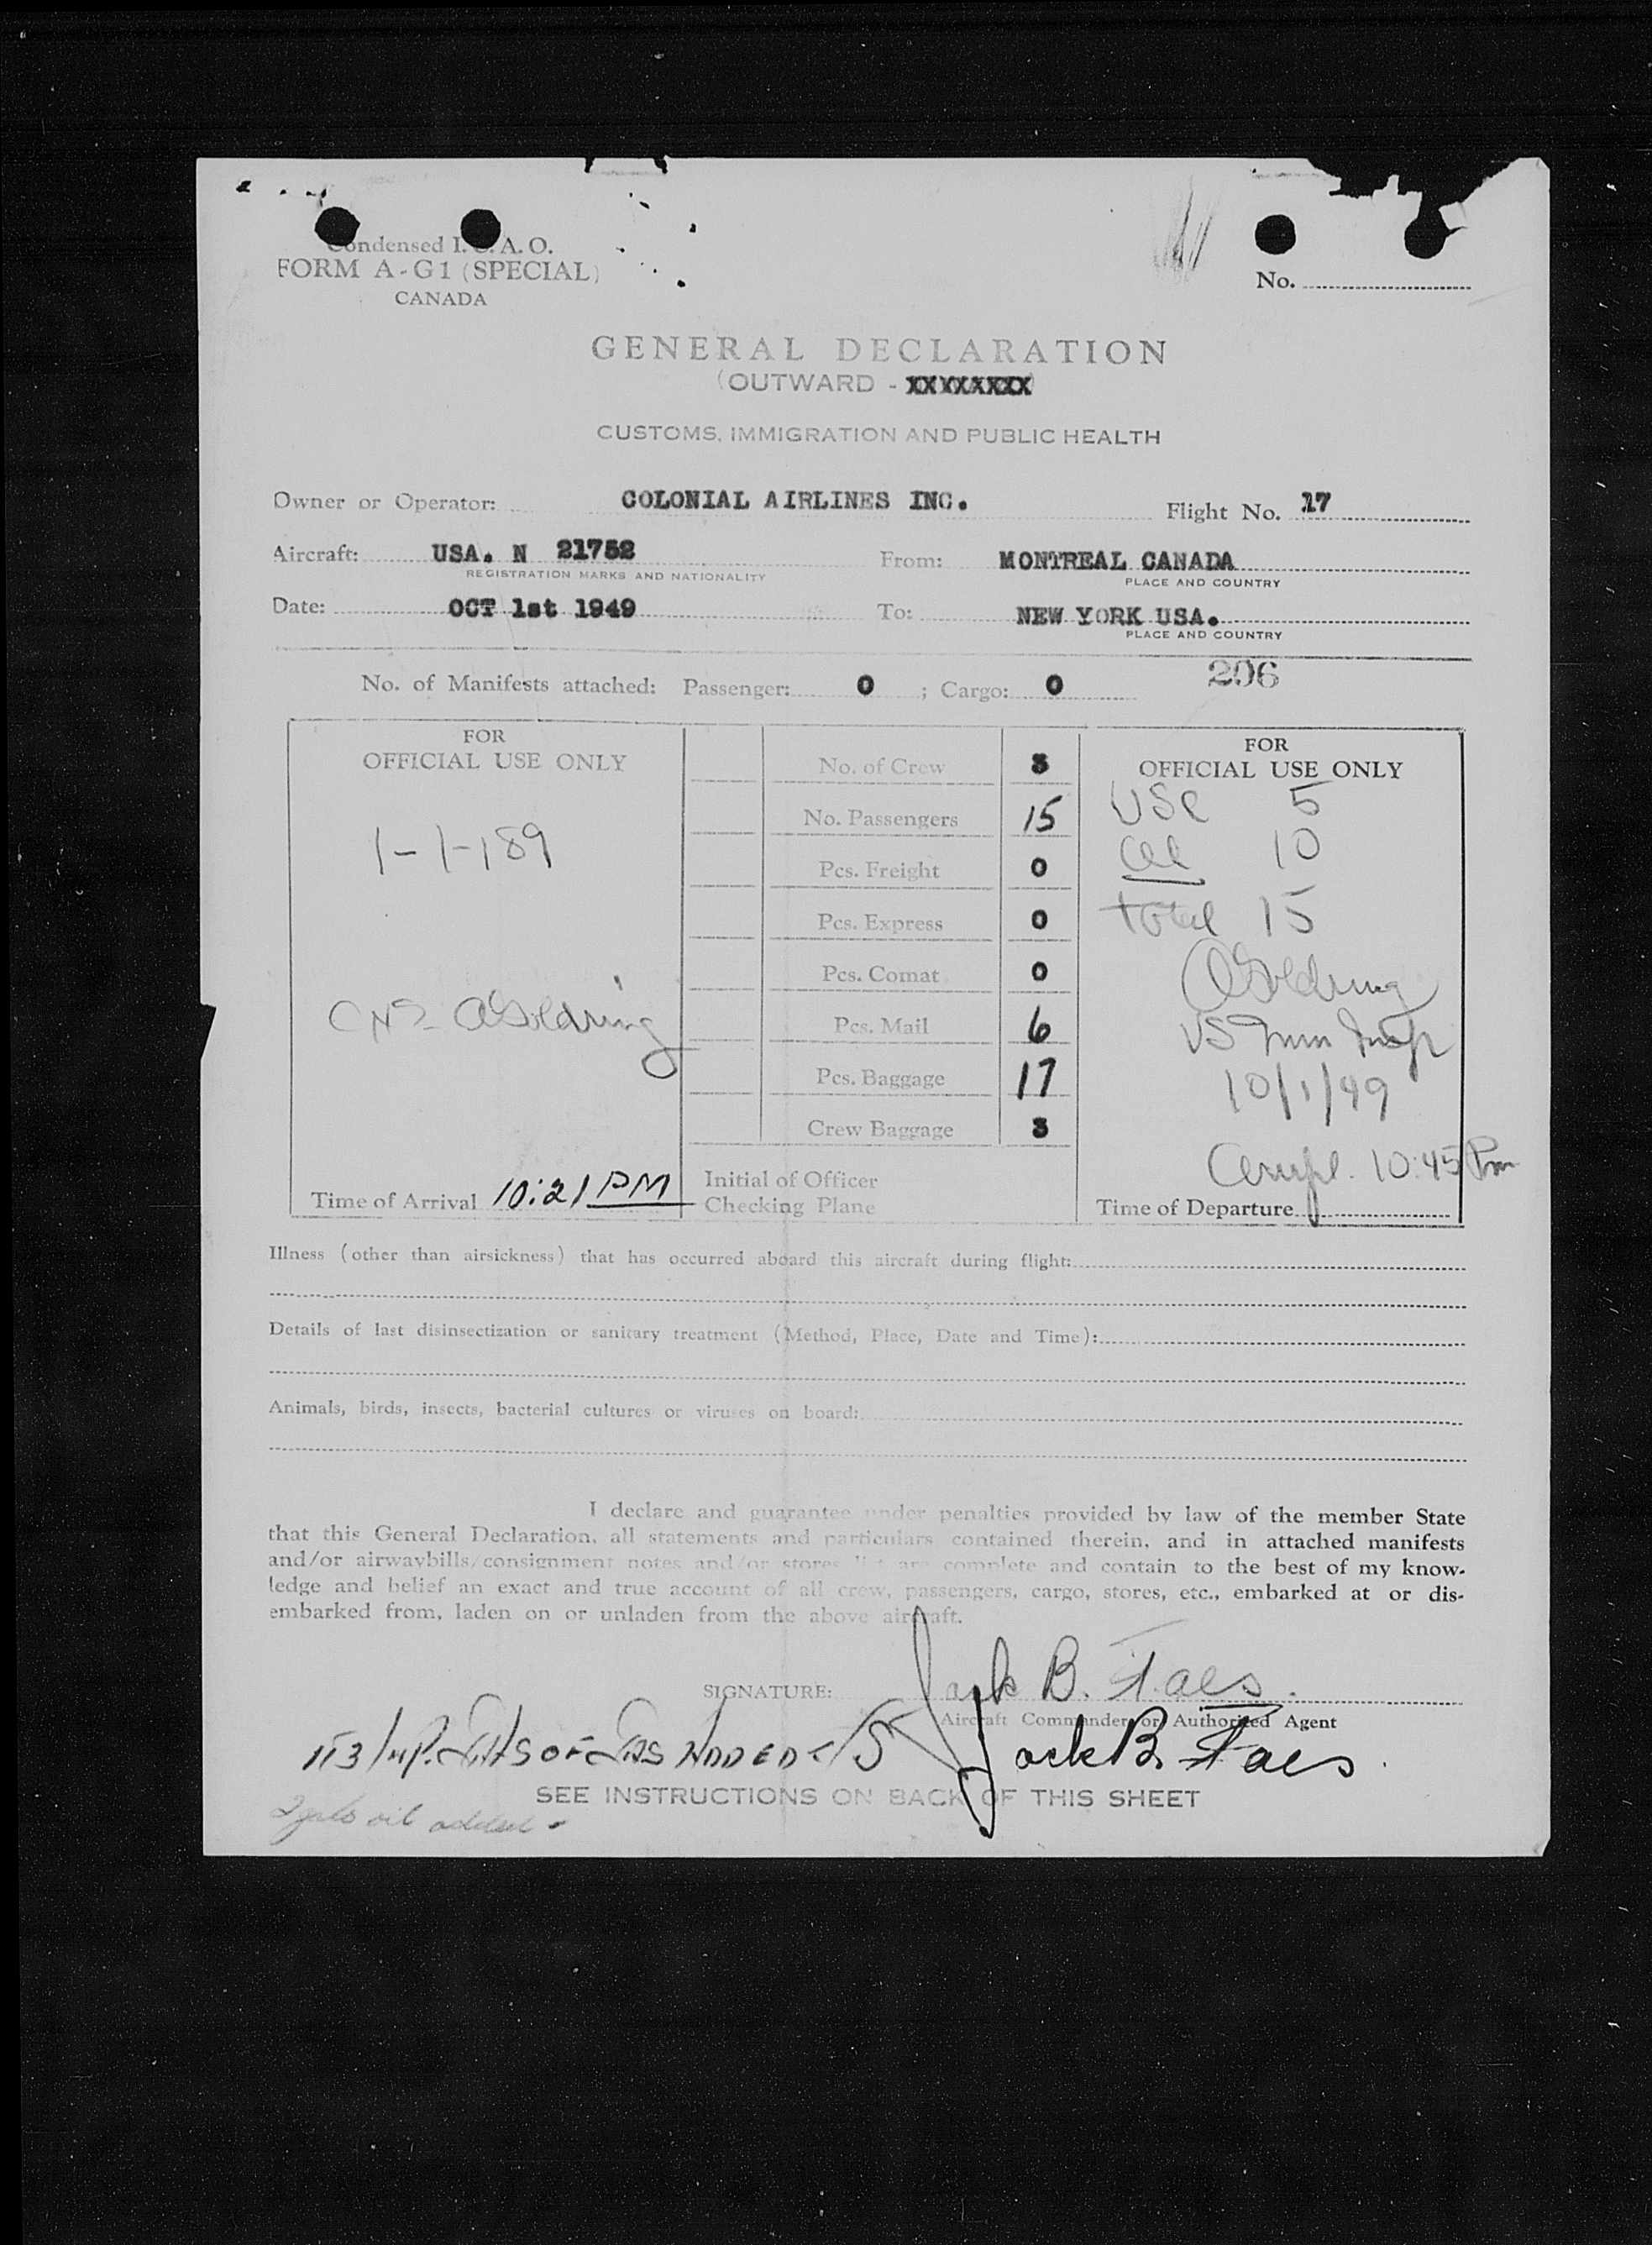 Condensed I.C.A.O.
FORM A-G1 (SPECIAL)
CANADA
No.
GENERAL DECLARATION
(OUTWARD - XXXXXXXX)
CUSTOMS, IMMIGRATION AND PUBLIC HEALTH
Owner or Operator: COLONIAL AIRLINES INC. Flight No. 17
Aircraft: USA. N 21752 From: MONTREAL CANADA
REGISTRATION MARKS AND NATIONALITY PLACE AND COUNTRY
Date: OCT 1st 1949 To: NEW YORK USA.
PLACE AND COUNTRY
206
No. of Manifests attached: Passenger: 0 ; Cargo: 0
FOR
OFFICIAL USE ONLY
1-1-189
Goldring
Time of Arrival 10:21 PM
No. of Crew 3
No. Passengers 15
Pcs. Freight 0
Pcs. Express 0
Pcs. Comat 0
Pcs. Mail 6
Pcs. Baggage 17
Crew Baggage 3
Initial of Officer
Checking Plane
FOR
OFFICIAL USE ONLY
USC 5
10
total 15
Goldring
US Imm Insp
10/1/49
10:45 Pm
Time of Departure
Illness (other than airsickness) that has occurred aboard this aircraft during flight:
Details of last disinsectization or sanitary treatment (Method, Place, Date and Time):
Animals, birds, insects, bacterial cultures or viruses on board:
I declare and guarantee under penalties provided by law of the member State
that this General Declaration, all statements and particulars contained therein, and in attached manifests
and/or airwaybills, consignment notes and/or stores list are complete and contain to the best of my know-
ledge and belief an exact and true account of all crew, passengers, cargo, stores, etc., embarked at or dis-
embarked from, laden on or unladen from the above aircraft.
SIGNATURE: Jack B. Faes.
Aircraft Commander or Authorized Agent
OF GAS ADDED Jack B. Faes.
SEE INSTRUCTIONS ON BACK OF THIS SHEET
2 gals oil added